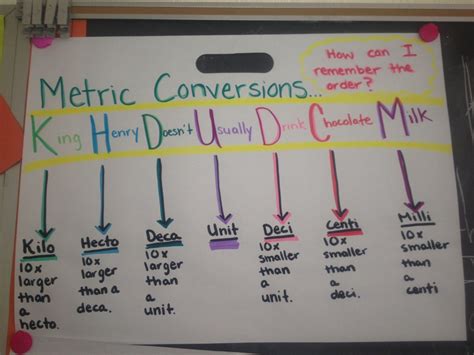 How can I
remember the
order?
Metric Conversions...
King Henry Doesn't Usually Drink Chocolate Milk
Kilo
10x
larger
than
a
hecto.
Hecto
10x
larger
than a
deca.
Deca
10x
larger
than
a
unit.
Unit
Deci
10x
smaller
than
a
unit.
Centi
10x
smaller
than
a
deci.
Milli
10x
smaller
than
a
centi